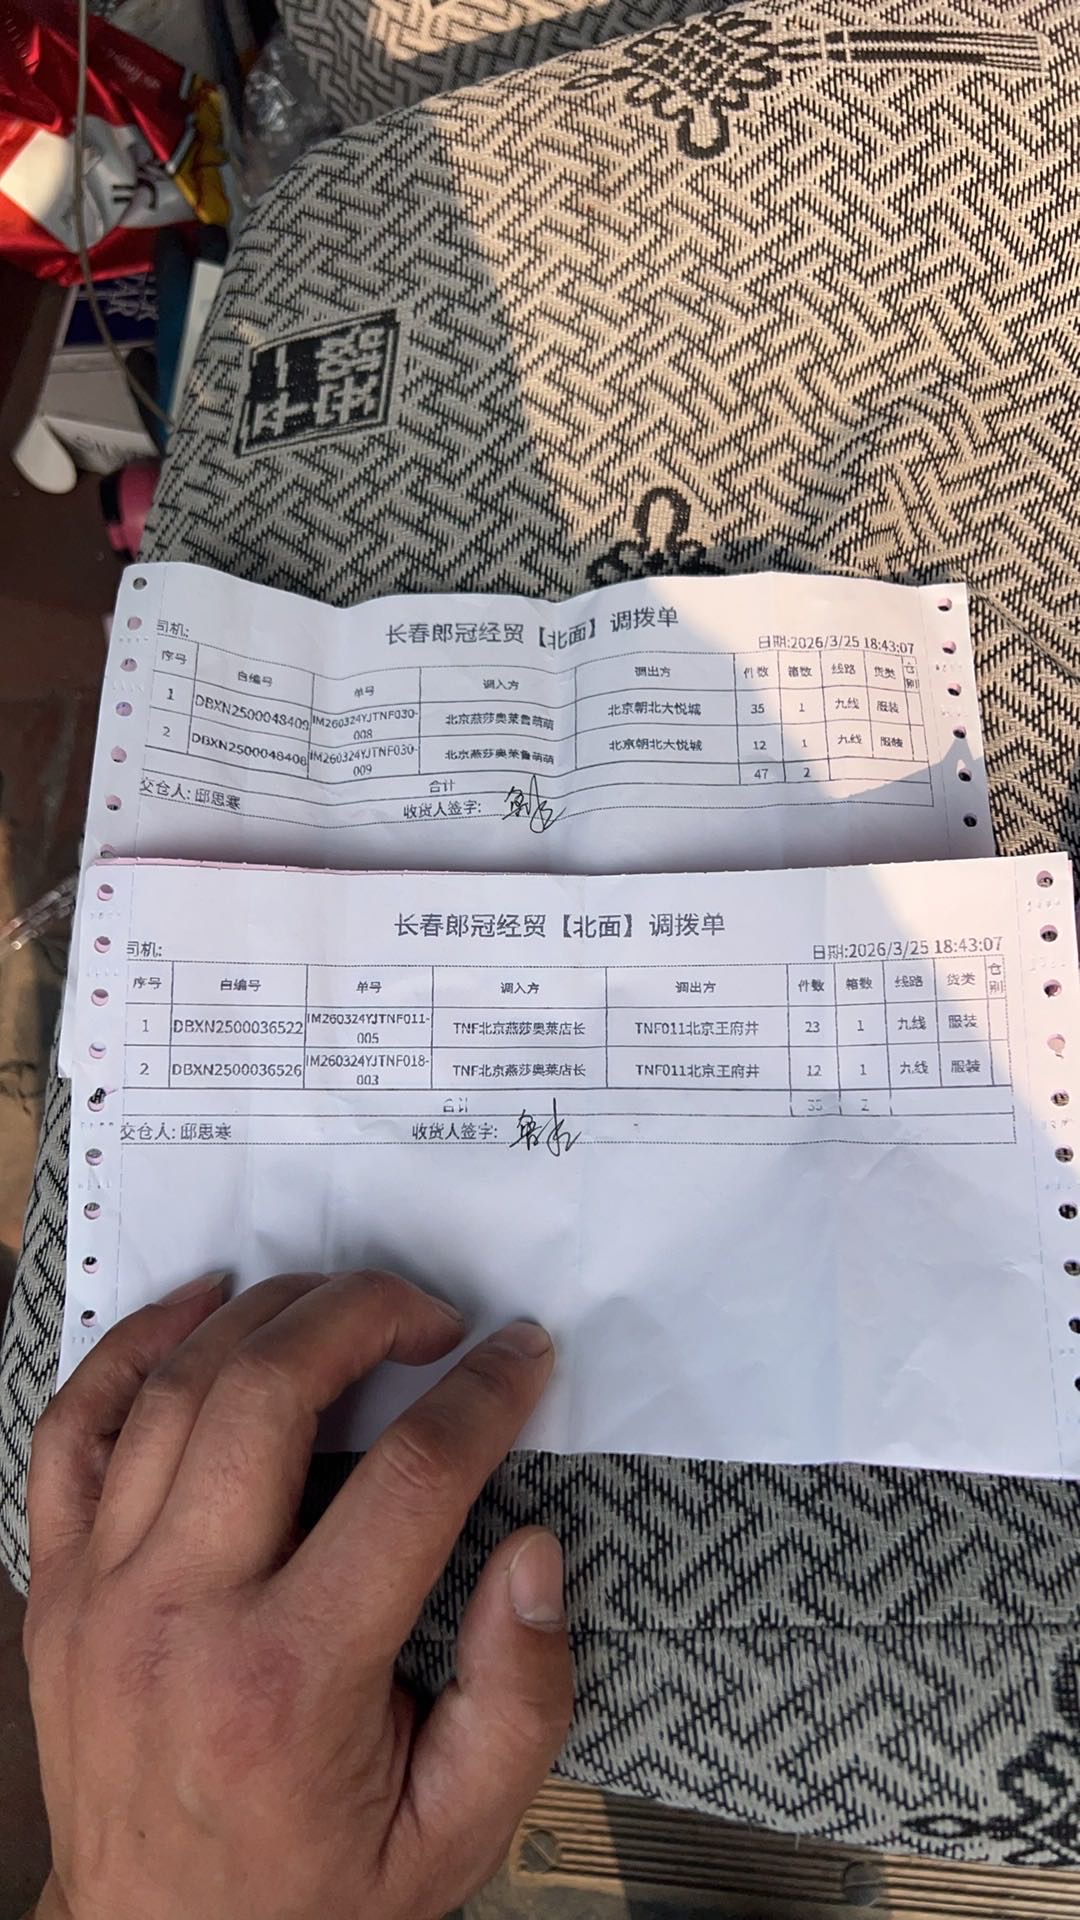 一生
平安
长春郎冠经贸【北面】调拨单
司机:
日期:2026/3/25 18:43:07
序号 自编号 单号 调入方 调出方 件数 箱数 线路 货类 仓别
1 DBXN2500048409 IM260324YJTNF030-008 北京燕莎奥莱鲁萌萌 北京朝北大悦城 35 1 九线 服装
2 DBXN2500048408 IM260324YJTNF030-009 北京燕莎奥莱鲁萌萌 北京朝北大悦城 12 1 九线 服装
合计 47 2
交仓人: 邸思寒 收货人签字:
长春郎冠经贸【北面】调拨单
司机:
日期:2026/3/25 18:43:07
序号 自编号 单号 调入方 调出方 件数 箱数 线路 货类 仓别
1 DBXN2500036522 IM260324YJTNF011-005 TNF北京燕莎奥莱店长 TNF011北京王府井 23 1 九线 服装
2 DBXN2500036526 IM260324YJTNF018-003 TNF北京燕莎奥莱店长 TNF011北京王府井 12 1 九线 服装
合计 35 2
交仓人: 邸思寒 收货人签字: